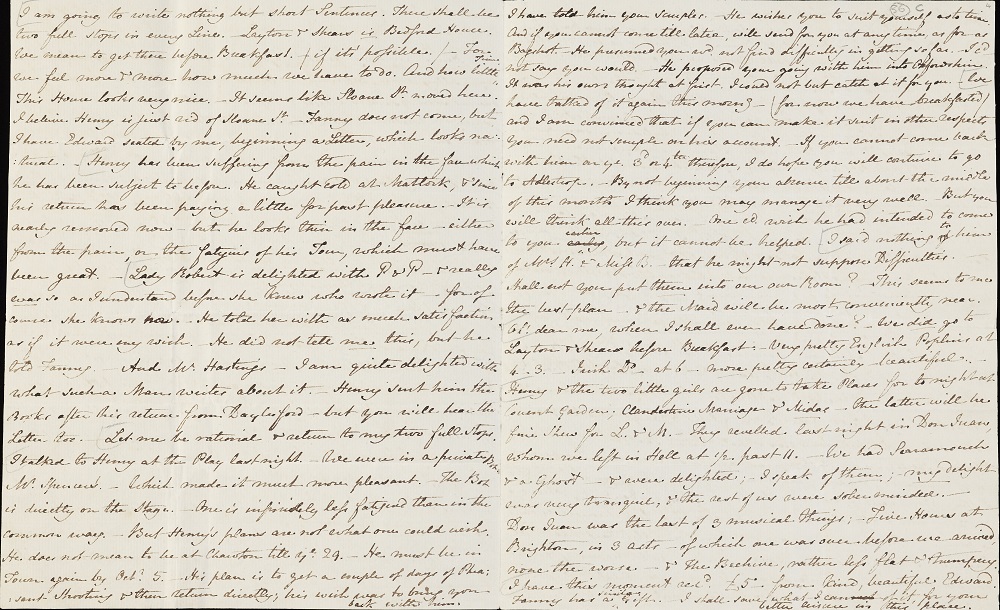 I am going to write nothing but short Sentences. There shall be
two full Stops in every Line. Layton & Shear's is Bedford House.
We mean to get there before Breakfast. if it's possible. For
we feel more & more how much we have to do. And how little Time.
This House looks very nice. It seems like Sloane St. moved here.
I believe Henry is just rid of Sloane St. Fanny does not come, but
I have Edward seated by me, beginning a Letter, which looks na-
tural. Henry has been suffering from the pain in the face which
he has been subject to before. He caught cold at Matlock, & since
his return has been paying a little for past pleasure. It is
nearly removed now but he looks thin in the face either
from the pain, or the fatigues of his Tour, which must have
been great. Lady Robert is delighted with P & P & really
was so as I understand before she knew who wrote it for of
course she knows now. He told her with as much satisfaction
as if it were my wish. He did not tell me this, but he
told Fanny. And Mr. Hastings I am quite delighted with
what such a Man writes about it. Henry sent him the
Books after his return from Daylesford but you will hear the
Letter too. Let me be rational & return to my two full stops.
I talked to Henry at the Play last night. We were in a private Box
Mr. Spencer's. Which made it much more pleasant. The Box
is directly on the Stage. One is infinitely less fatigued than in the
common way. But Henry's plans are not what one could wish.
He does not mean to be at Chawton till ye. 29. He must be in
Town again by Octr. 5. His plan is to get a couple of days of Phea-
sant Shooting & then return directly; his wish was to bring you
back with him.
I have told him your scruples. He wishes you to suit yourself as to time
And if you cannot come till later, will send for you at any time, as far as
Bagshot. He presumed you wd. not find difficulty in getting so far. I cd.
not say you would. He proposed your going with him into Oxfordshire.
It was his own thought at first. I could not but catch at it for you. We
have talked of it again this morng. (for now we have breakfasted)
and I am convinced that if you can make it suit in other respects
you need not scruple on his account. If you cannot come back
with him on ye. 3d or 4th. therefore, I do hope you will contrive to go
to Adlestrop. By not beginning your absence till about the middle
of this month I think you may manage it very well. But you
will think all this over. One cd. wish he had intended to come
to you earlier, but it cannot be helped. I said nothing to him
of Mrs. H. & Miss B. that he might not suppose Difficulties.
Shall not you put them into our own Room? This seems to me
the best plan & the Maid will be most conveniently near.
Oh! dear me, when I shall ever have done? We did go to
Layton & Shear's before Breakfast. Very pretty English Poplins at
4.3. Irish Do. at 6 more pretty certainly beautiful.
Henry & the two little girls are gone to take Places for to night at
Covent Garden; Clandestine Marriage & Midas. The latter will be
fine show for L. & M. They revelled last night in Don Juan,
whom we left in Hell at ½ past 11. We had Scaramouch
& a Ghost & were delighted; I speak of them; my delight
was very tranquil, & the rest of us were sober-minded.
Don Juan was the last of 3 musical things; Five Hours at
Brighton, in 3 acts of which one was over before we arrived
none the worse & The Beehive, rather less flat & trumpery.
I have this moment recd. £5 from kind, beautiful Edward
Fanny has a similar Gift. I shall save what I can of it for your
better leisure in this place.